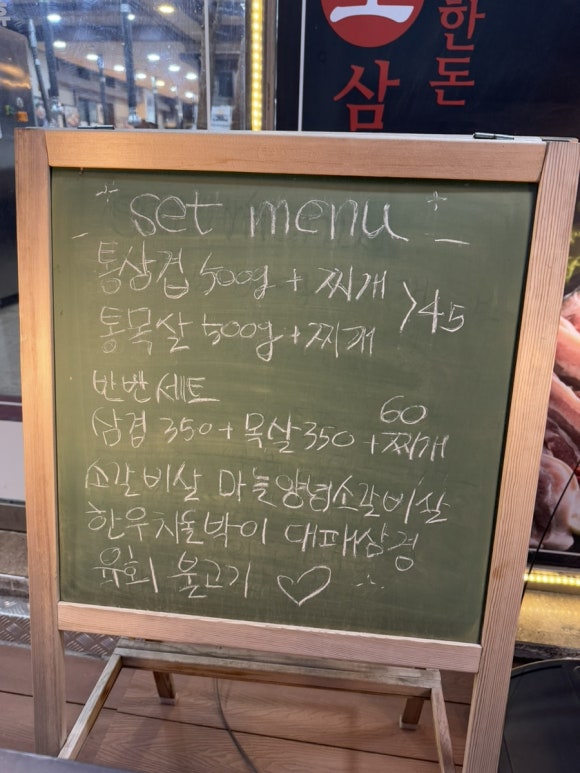 한돈
삼
set menu
통삼겹 500g + 찌개
통목살 500g + 찌개
>45
반반세트
60
삼겹 350 + 목살 350 + 찌개
소갈비살 마늘양념소갈비살
한우차돌박이 대패삼겹
육회 불고기 ♡